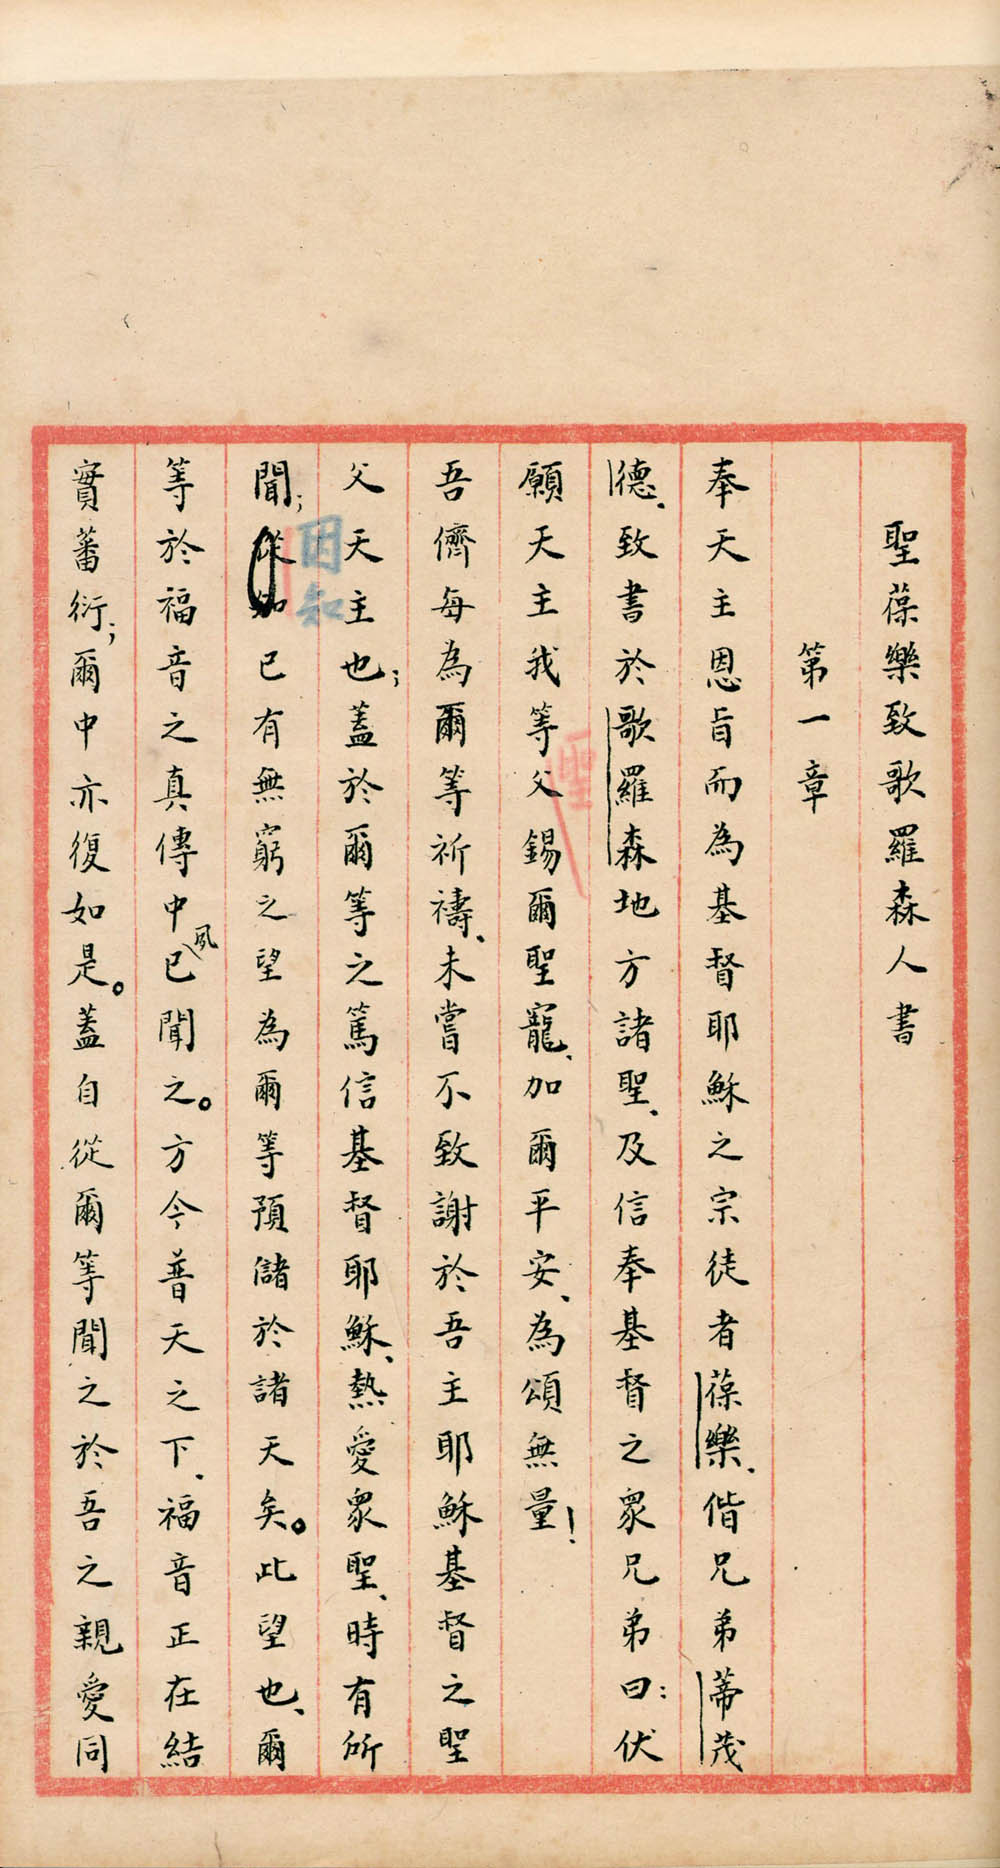 聖葆樂致歌羅森人書
第一章
奉天主恩旨而為基督耶穌之宗徒者葆樂、偕兄弟蒂茂
德、致書於歌羅森地方諸聖、及信奉基督之眾兄弟曰：伏
願天主我等父錫爾聖寵、加爾平安、為頌無量！
聖
吾儕每為爾等祈禱、未嘗不致謝於吾主耶穌基督之聖
父天主也；蓋於爾等之篤信基督耶穌、熱愛眾聖、時有所
因知
聞；從知已有無窮之望為爾等預儲於諸天矣。此望也、爾
等於福音之真傳中夙已聞之。方今普天之下、福音正在結
實蕃衍；爾中亦復如是。蓋自從爾等聞之於吾之親愛同